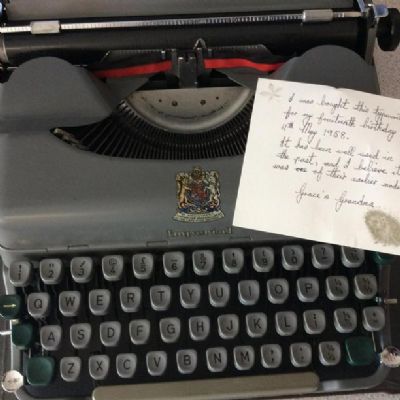 I was bought this typewri
for my fourteenth birthday
4th May 1958.
It had been well used in
the past, and I believe it
was one of their earlier mode
Grace's Grandma.
Imperial
Q W E R T Y U I O P
A S D F G H J K L
Z X C V B N M